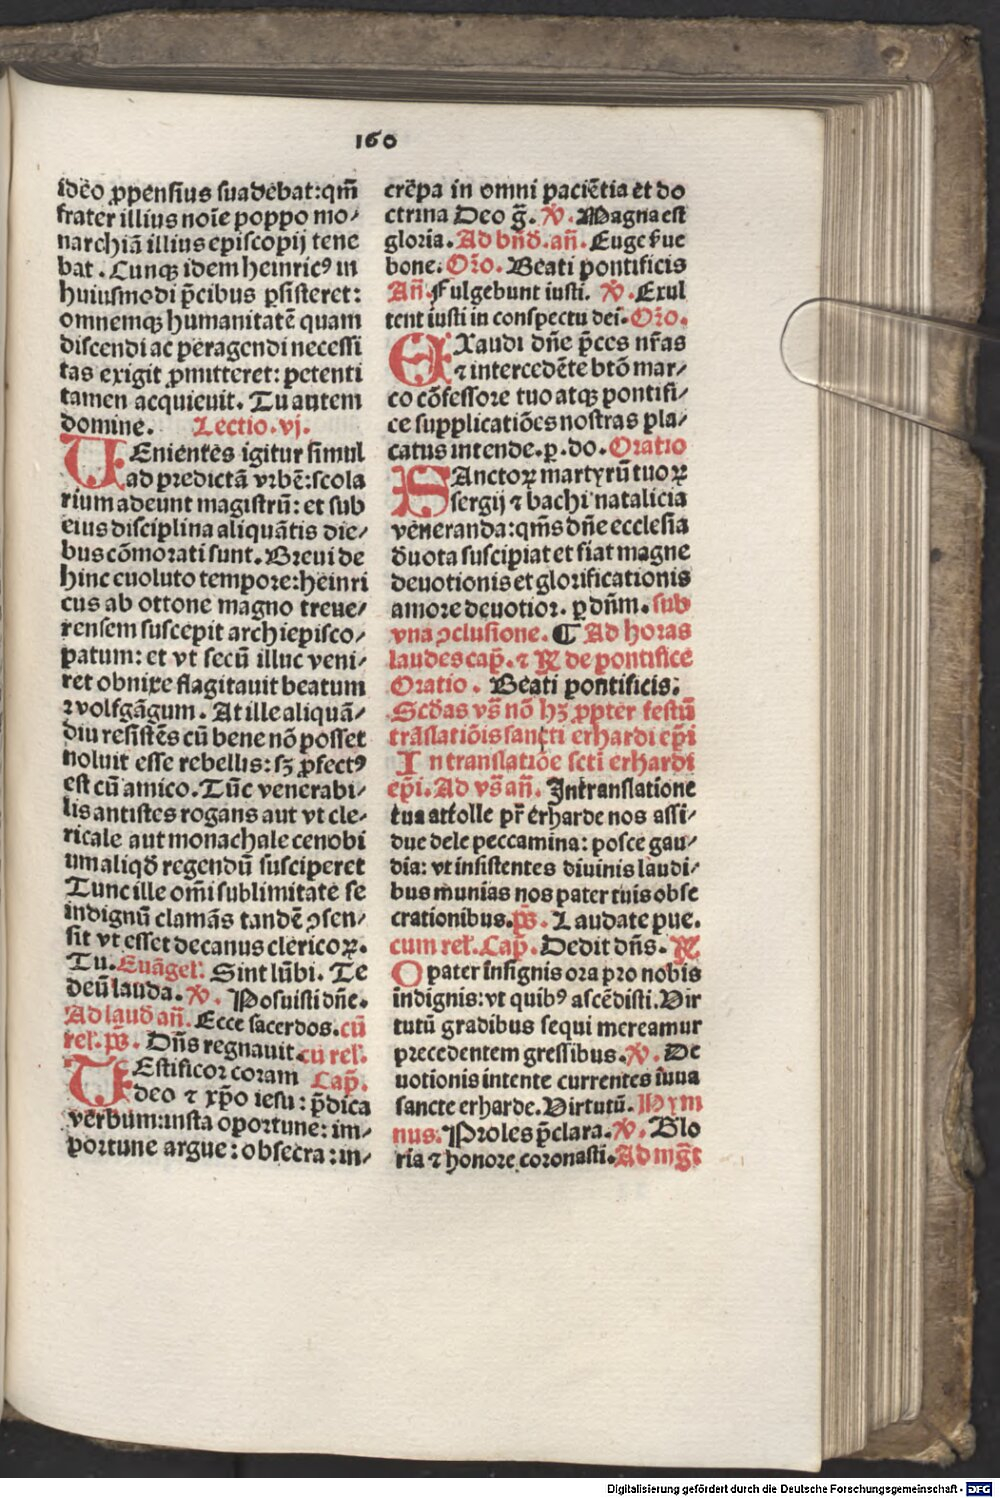 160
ideo ꝓpensius suadebat: qm̄
frater illius noīe poppo mo⸗
narchiā illius episcopij tene
bat. Cunqꝫ idem heinricꝰ in
huiusmodi p̄cibus ꝑsisteret:
omnemqꝫ humanitatē quam
discendi ac peragendi necessi
tas exigit ꝓmitteret: petenti
tamen acquieuit. Tu autem
domine. Lectio. vj.
UEnientes igitur simul
ad predictā vrbē: scola
rium adeunt magistrū: et sub
eius disciplina aliquātis die⸗
bus cōmorati sunt. Breui de
hinc euoluto tempore: heinri
cus ab ottone magno treue⸗
rensem suscepit archiepisco⸗
patum: et vt secū illuc veni⸗
ret obnixe flagitauit beatum
wolfgāgum. At ille aliquā⸗
diu resistēs cū bene nō posset
noluit esse rebellis: sꝫ ꝓfectꝰ
est cū amico. Tūc venerabi⸗
lis antistes rogans aut vt cle⸗
ricale aut monachale cenobi
um aliqd̄ regendū susciperet
Tunc ille om̄i sublimitate se
indignū clamās tandē ꝯsen⸗
sit vt esset decanus clericoꝝ.
Tu. Euāgel'. Sint lūbi. Te
deū lauda. ℣. Posuisti dn̄e.
Ad laud an̄. Ecce sacerdos. cū
rel'. ps̄. Dn̄s regnauit. cū rel'.
TEstificor coram Cap̄.
deo ⁊ xp̄o iesu: p̄dica
verbum: insta oportune: im⸗
portune argue: obsecra: in⸗
crēpa in omni paciētia et do
ctrina Deo ḡ. ℣. Magna est
gloria. Ad bn̄d. an̄. Euge s̄ue
bone. Or̄o. Beati pontificis
An̄. Fulgebunt iusti. ℣. Exul
tent iusti in conspectu dei. Or̄o.
EXaudi dn̄e p̄ces nr̄as
⁊ intercedēte btō mar⸗
co cōfessore tuo atqꝫ pontifi⸗
ce supplicatiōes nostras pla⸗
catus intende. p. do. Oratio
SAnctoꝝ martyrū tuoꝝ
sergij ⁊ bachi natalicia
veneranda: qm̄s dn̄e ecclesia
d̄uota suscipiat et fiat magne
deuotionis et glorificationis
amore deuotior. ꝑ dn̄m. sub
vna ꝯclusione. ¶ Ad horas
laudes cap̄. ⁊ ℟ de pontifice
Oratio. Beati pontificis.
Scd̄as vs̄ nō hꝫ ꝓpter festū
trāslatiōis sancti erhardi ep̄i
In translatiōe scti erhardi
ep̄i. Ad vs̄ an̄. In translatione
tua attolle pr̄ erharde nos assi⸗
due dele peccamina: posce gau⸗
dia: vt insistentes diuinis laudi⸗
bus munias nos pater tuis obse
crationibus. ps̄. Laudate pue.
cum rel'. Cap̄. Dedit dn̄s. ℟.
O pater insignis ora pro nobis
indignis: vt quibꝰ ascēdisti. Vir
tutū gradibus sequi mereamur
precedentem gressibus. ℣. De
uotionis intente currentes iuua
sancte erharde. Virtutū. Hym
nus. Proles p̄clara. ℣. Glo
ria ⁊ honore coronasti. Ad mgt̄
Digitalisierung gefördert durch die Deutsche Forschungsgemeinschaft - DFG